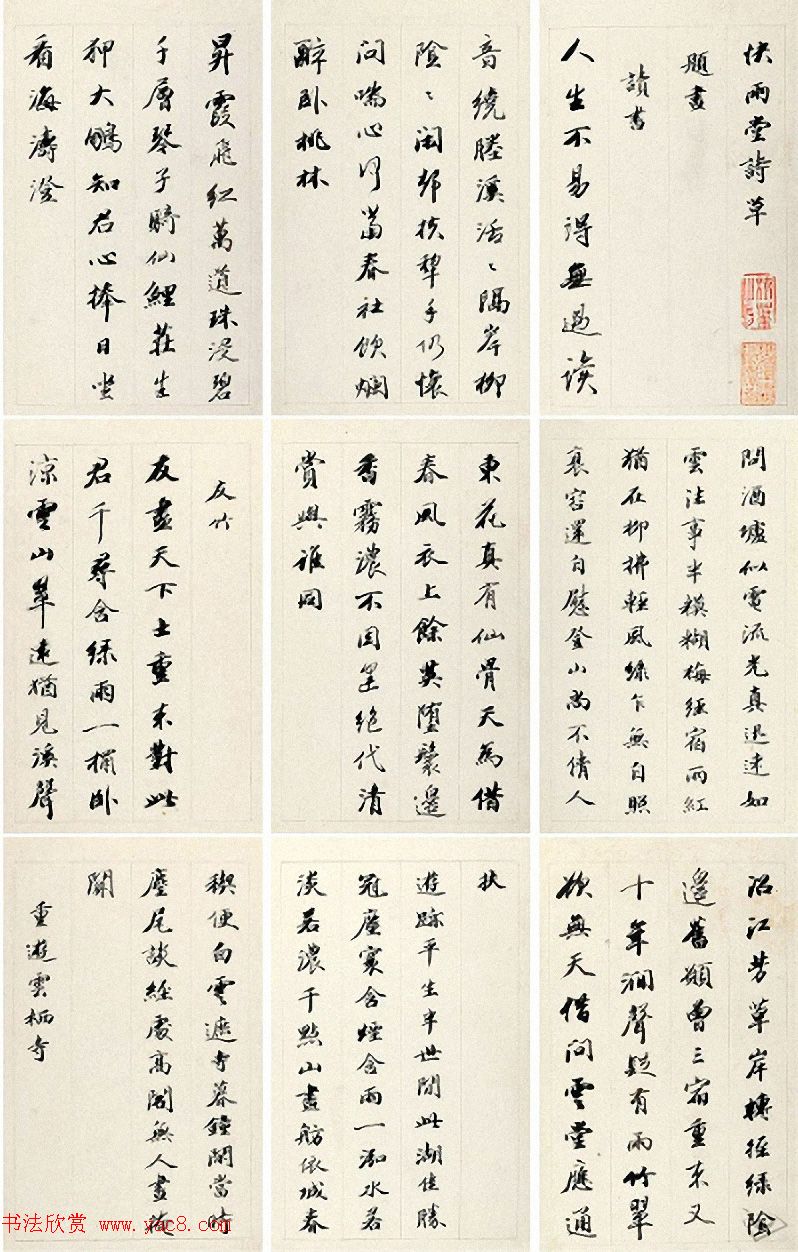 快雨堂詩草
題畫
讀書
人生不易得無過讀
音繞塍溪活〻隔岸柳
陰〻閑邨扶犂手仍懷
問喘心何當春社飲爛
醉卧桃林
昇霞飛紅萬道珠浸碧
千層琴子騎仙鯉莊生
狎大鵬知君心捧日坐
看海濤澄
問酒壚似電流光真迅速如
雲往事半模糊梅經宿雨紅
猶在柳拂輕風綠乍無自照
衰容還自慰登山尚不倩人
東花真有仙骨天為借
春風衣上餘英墮鬟邊
香霧濃不因是絕代清
賞與誰同
友竹
友盡天下士重來對此
君千尋含綠雨一榻卧
涼雲山翠遠猶見溪聲
沿江芳草岸轉徑綠陰
邊舊額曾三宿重來又
十年澗聲疑有雨竹翠
欲無天借問雲堂應通
扶
遊跡平生半世間此湖佳勝
冠塵寰含煙含雨一泓水若
淡若濃千點山畫舫依城春
禊便白雲遮寺暮鐘閒當時
麈尾談經處高閣無人晝掩
關
重遊雲栖寺
书法欣赏 www.yac8.com